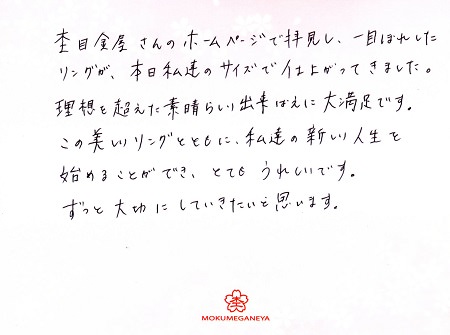 杢目金屋さんのホームページで拝見し、一目ぼれした
リングが、本日私達のサイズで仕上がってきました。
理想を超えた素晴らしい出来ばえに大満足です。
この美しいリングとともに、私達の新しい人生を
始めることができ、とてもうれしいです。
ずっと大切にしていきたいと思います。
MOKUMEGANEYA